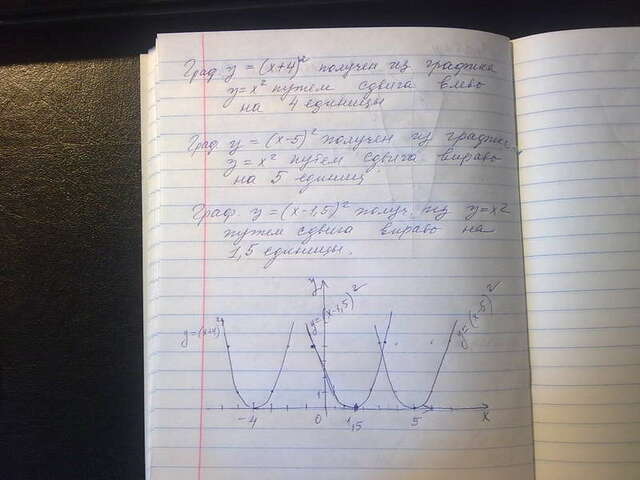 Граф y = (x+4)² получен из графика
y = x² путем сдвига влево
на 4 единицы
Граф y = (x-5)² получен из график
y = x² путем сдвига вправо
на 5 единиц
Граф. y = (x-1,5)² получ. из y = x²
путем сдвига вправо на
1,5 единицы.
y
y = (x+4)² y = (x-1,5)² y = (x-5)²
1
-4 0 1,5 5 x